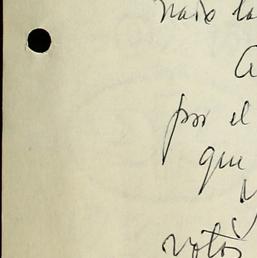 nado la
por el
que
votos